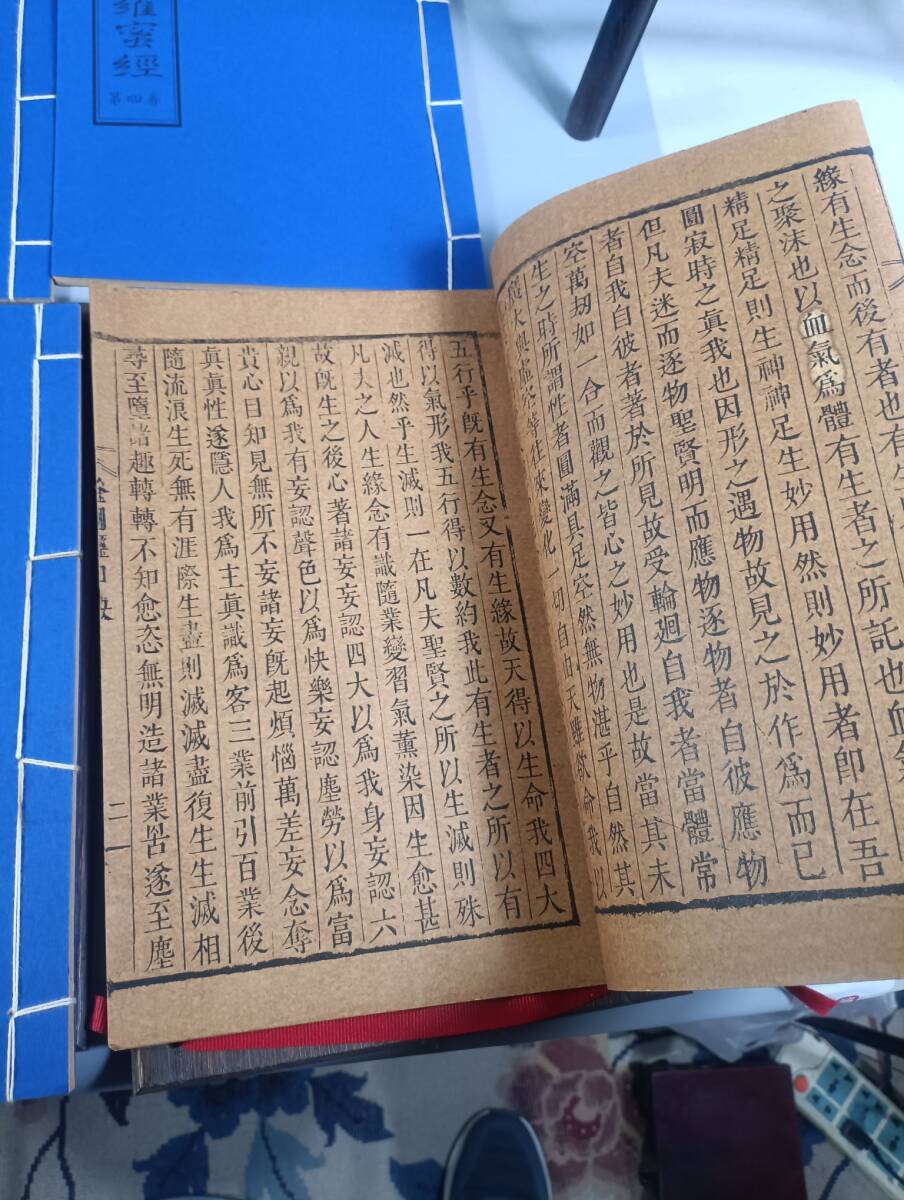 羅蜜經
第四卷
緣有生念而後有者也有生
之聚沫也以血氣爲體有生者之所託也血氣
精足精足則生神神足生妙用然則妙用者即在吾
圓寂時之眞我也因形之遇物故見之於作爲而已
但凡夫迷而逐物聖賢明而應物逐物者自彼應物
者自我自彼者著於所見故受輪廻自我者當體常
空萬刼如一合而觀之皆心之妙用也是故當其未
生之時所謂性者圓滿具足空然無物湛乎自然其
廣大與虛空等往來變化一切自由天雖欲命我以
五行乎旣有生念又有生緣故天得以生命我四大
得以氣形我五行得以數約我此有生者之所以有
滅也然乎生滅則一在凡夫聖賢之所以生滅則殊
凡夫之人生緣念有識隨業變習氣薰染因生愈甚
故旣生之後心著諸妄妄認四大以爲我身妄認六
親以爲我有妄認聲色以爲快樂妄認塵勞以爲富
貴心目知見無所不妄諸妄旣起煩惱萬差妄念奪
眞眞性遂隱人我爲主眞識爲客三業前引百業後
隨流浪生死無有涯際生盡則滅滅盡復生生滅相
尋至墮諸趣轉轉不知愈恣無明造諸業罟遂至塵
金剛經口訣
二